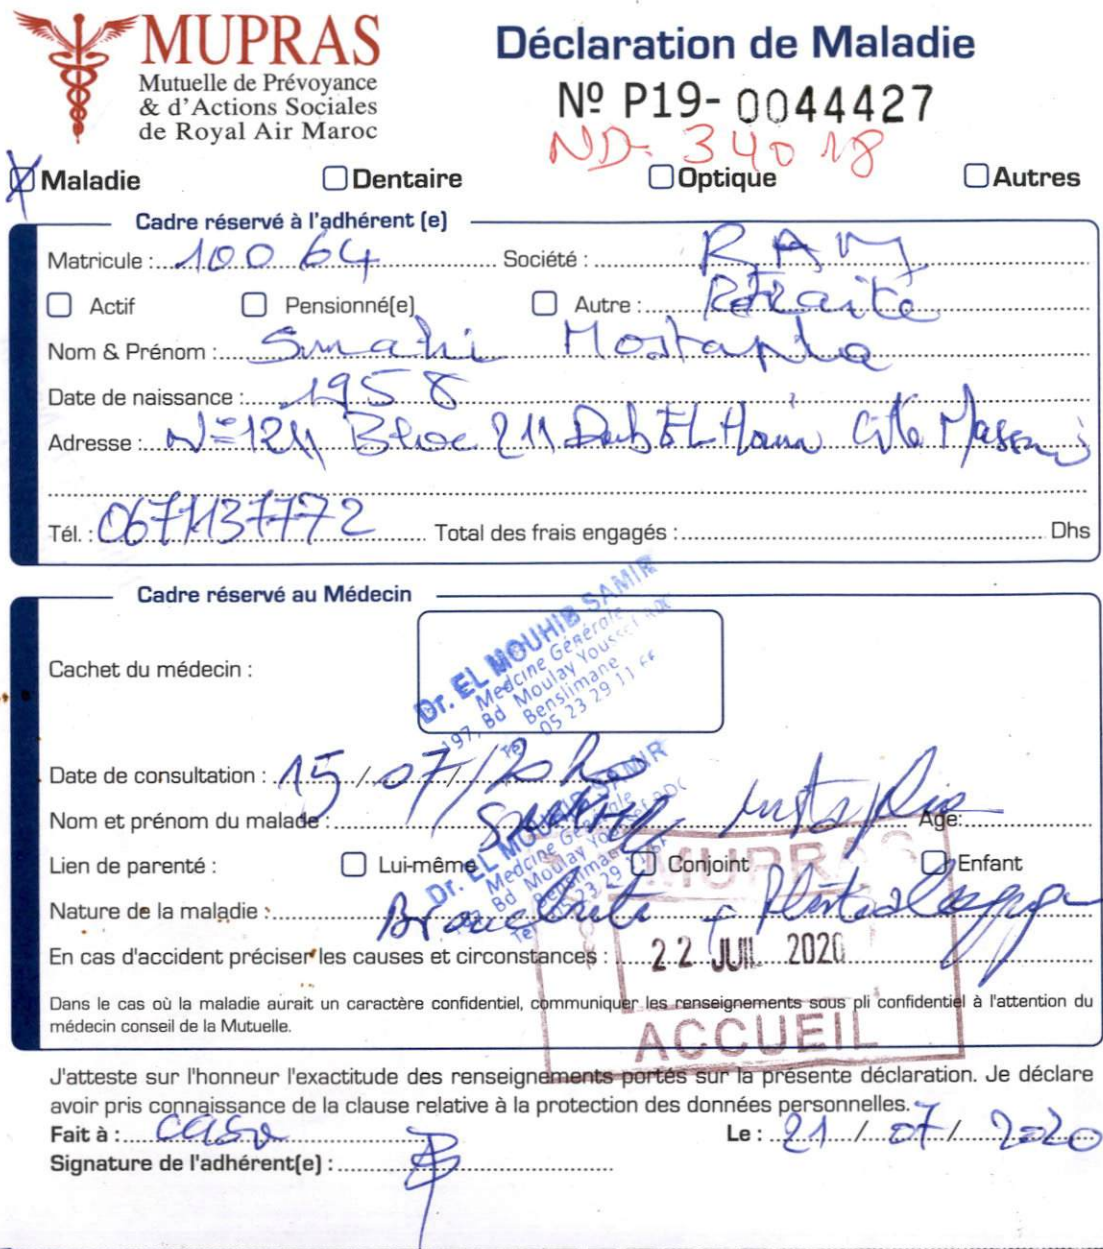 MUPRAS
Mutuelle de Prévoyance
& d'Actions Sociales
de Royal Air Maroc
Déclaration de Maladie
Nº P19- 0044427
ND- 34018
Maladie Dentaire Optique Autres
Cadre réservé à l'adhérent (e)
Matricule : 10064 Société : RAM
Actif Pensionné(e) Autre : Retraite
Nom & Prénom : Smahi Mostapha
Date de naissance : 1958
Adresse : N=1211 Bloc 211 Cité
Tél. : 0671137772 Total des frais engagés : Dhs
Cadre réservé au Médecin
Cachet du médecin :
Dr. EL MOUHIB SAMIR
Medcine Générale
197, Bd Moulay Youssef
Benslimane
05 23 29 11
Date de consultation : 15/07/2020
Nom et prénom du malade : Age:
Dr. EL MOUHIB SAMIR
Medcine Générale
Bd Moulay Youssef
Benslimane
05 23 29 11
Lien de parenté : Lui-même Conjoint Enfant
MUPRAS
Nature de la maladie : +
En cas d'accident préciser les causes et circonstances :
22 JUIL 2020
Dans le cas où la maladie aurait un caractère confidentiel, communiquer les renseignements sous pli confidentiel à l'attention du
médecin conseil de la Mutuelle.
ACCUEIL
J'atteste sur l'honneur l'exactitude des renseignements portés sur la présente déclaration. Je déclare
avoir pris connaissance de la clause relative à la protection des données personnelles.
Fait à : casa Le : 21/07/2020
Signature de l'adhérent(e) :